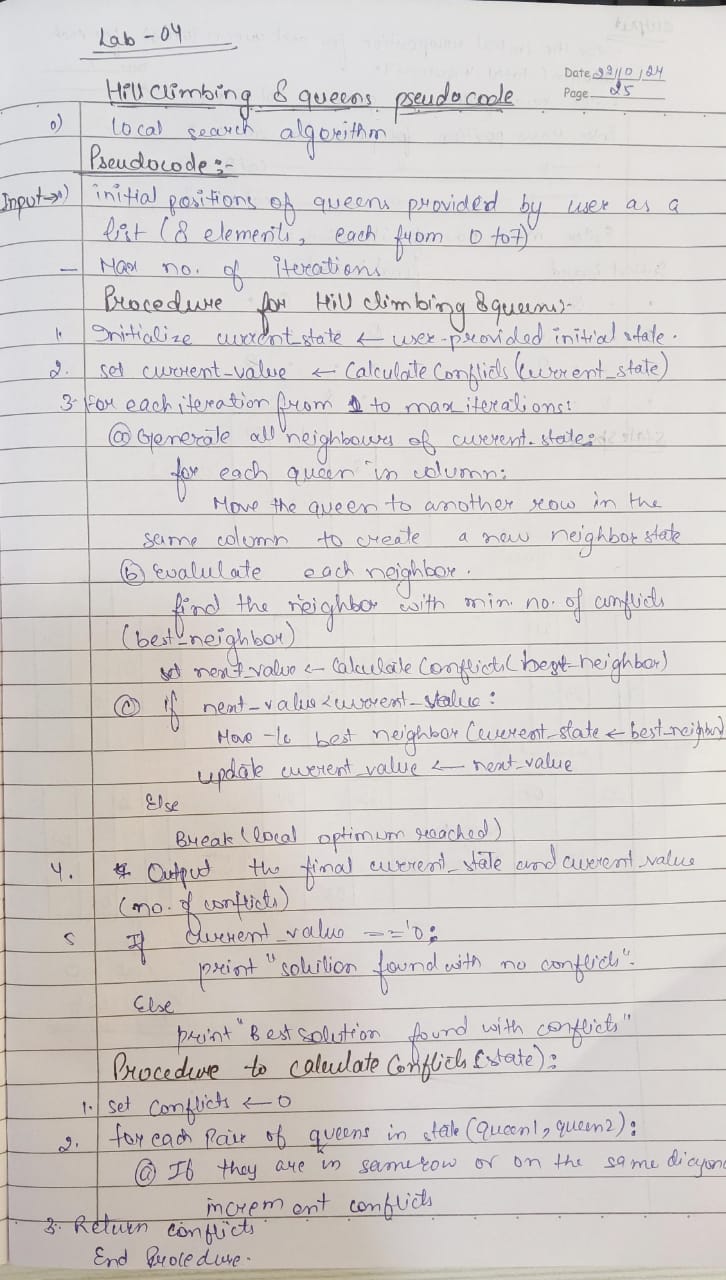 Lab - 04
Date 22/10/24
Hill climbing 8 queens pseudocode
Page 25
o) local search algorithm
Pseudocode :-
Input→ 1) initial positions of queens provided by user as a
list (8 elements, each from 0 to 7)
— Max no. of iterations
Procedure for Hill climbing 8 queens:-
1. Initialize current_state ← user-provided initial state.
2. set current-value ← Calculate Conflicts (current_state)
3. for each iteration from 1 to max iterations:
(a) Generate all neighbours of current. state:
for each queen in column:
Move the queen to another row in the
same column to create a new neighbor state
(b) Evalulate each neighbor.
find the neighbor with min. no. of conflicts
(best-neighbor)
set next_value ← Calculate Conflicts (best-neighbor)
(c) if next-value < current-value :
Move to best neighbor (current-state ← best-neighbor)
update current_value ← next-value
Else
Break (local optimum reached)
4. Output the final current_state and current_value
(no. of conflicts)
5 If current_value == '0:
print "solution found with no conflicts".
Else
print "Best solution found with conflicts"
Procedure to calculate Conflicts (state):
1. set conflicts ← 0
2. for each Pair of queens in state (Queen1, queen2):
(a) If they are in same row or on the same diagonal
increment conflicts
3. Return conflicts
End Procedure.